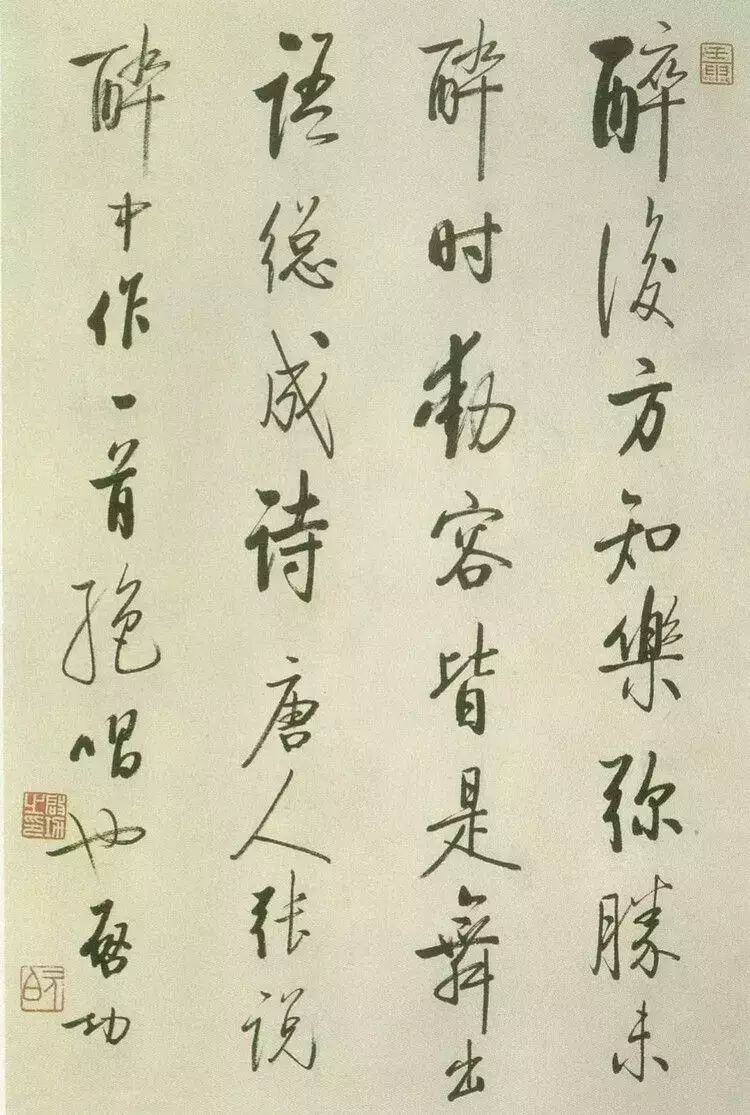 醉後方知樂弥勝未
醉时動容皆是舞出
语总成诗唐人张说
醉中作一首绝唱也启功
启功之印